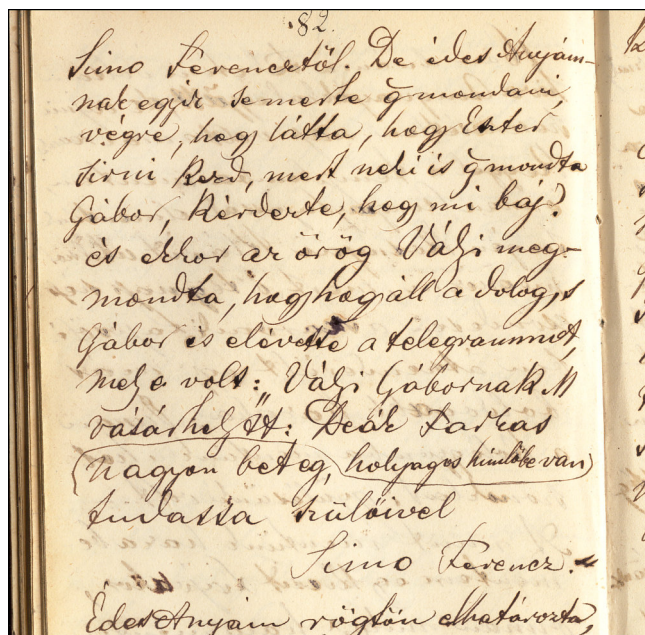 82.
Simo Ferencztől. De édes Anyám-
nak egyik se merte g̃ mondani,
végre, hogy látta, hogy Eszter
sirni kezd, mert neki is g̃ mondta
Gábor, kérdezte, hogy mi baj?
és ekkor az örög Vályi meg-
mondta, hogy hogy áll a dolog, s
Gábor is elévette a telegrammot,
mely e volt: Vályi Gábornak M
vásárhelytt: Deák Farkas
(nagyon beteg, holyagos himlőbe van)
tudassa szülőivel
Simo Ferencz."
Édes Anyám rögtön elhatározta,